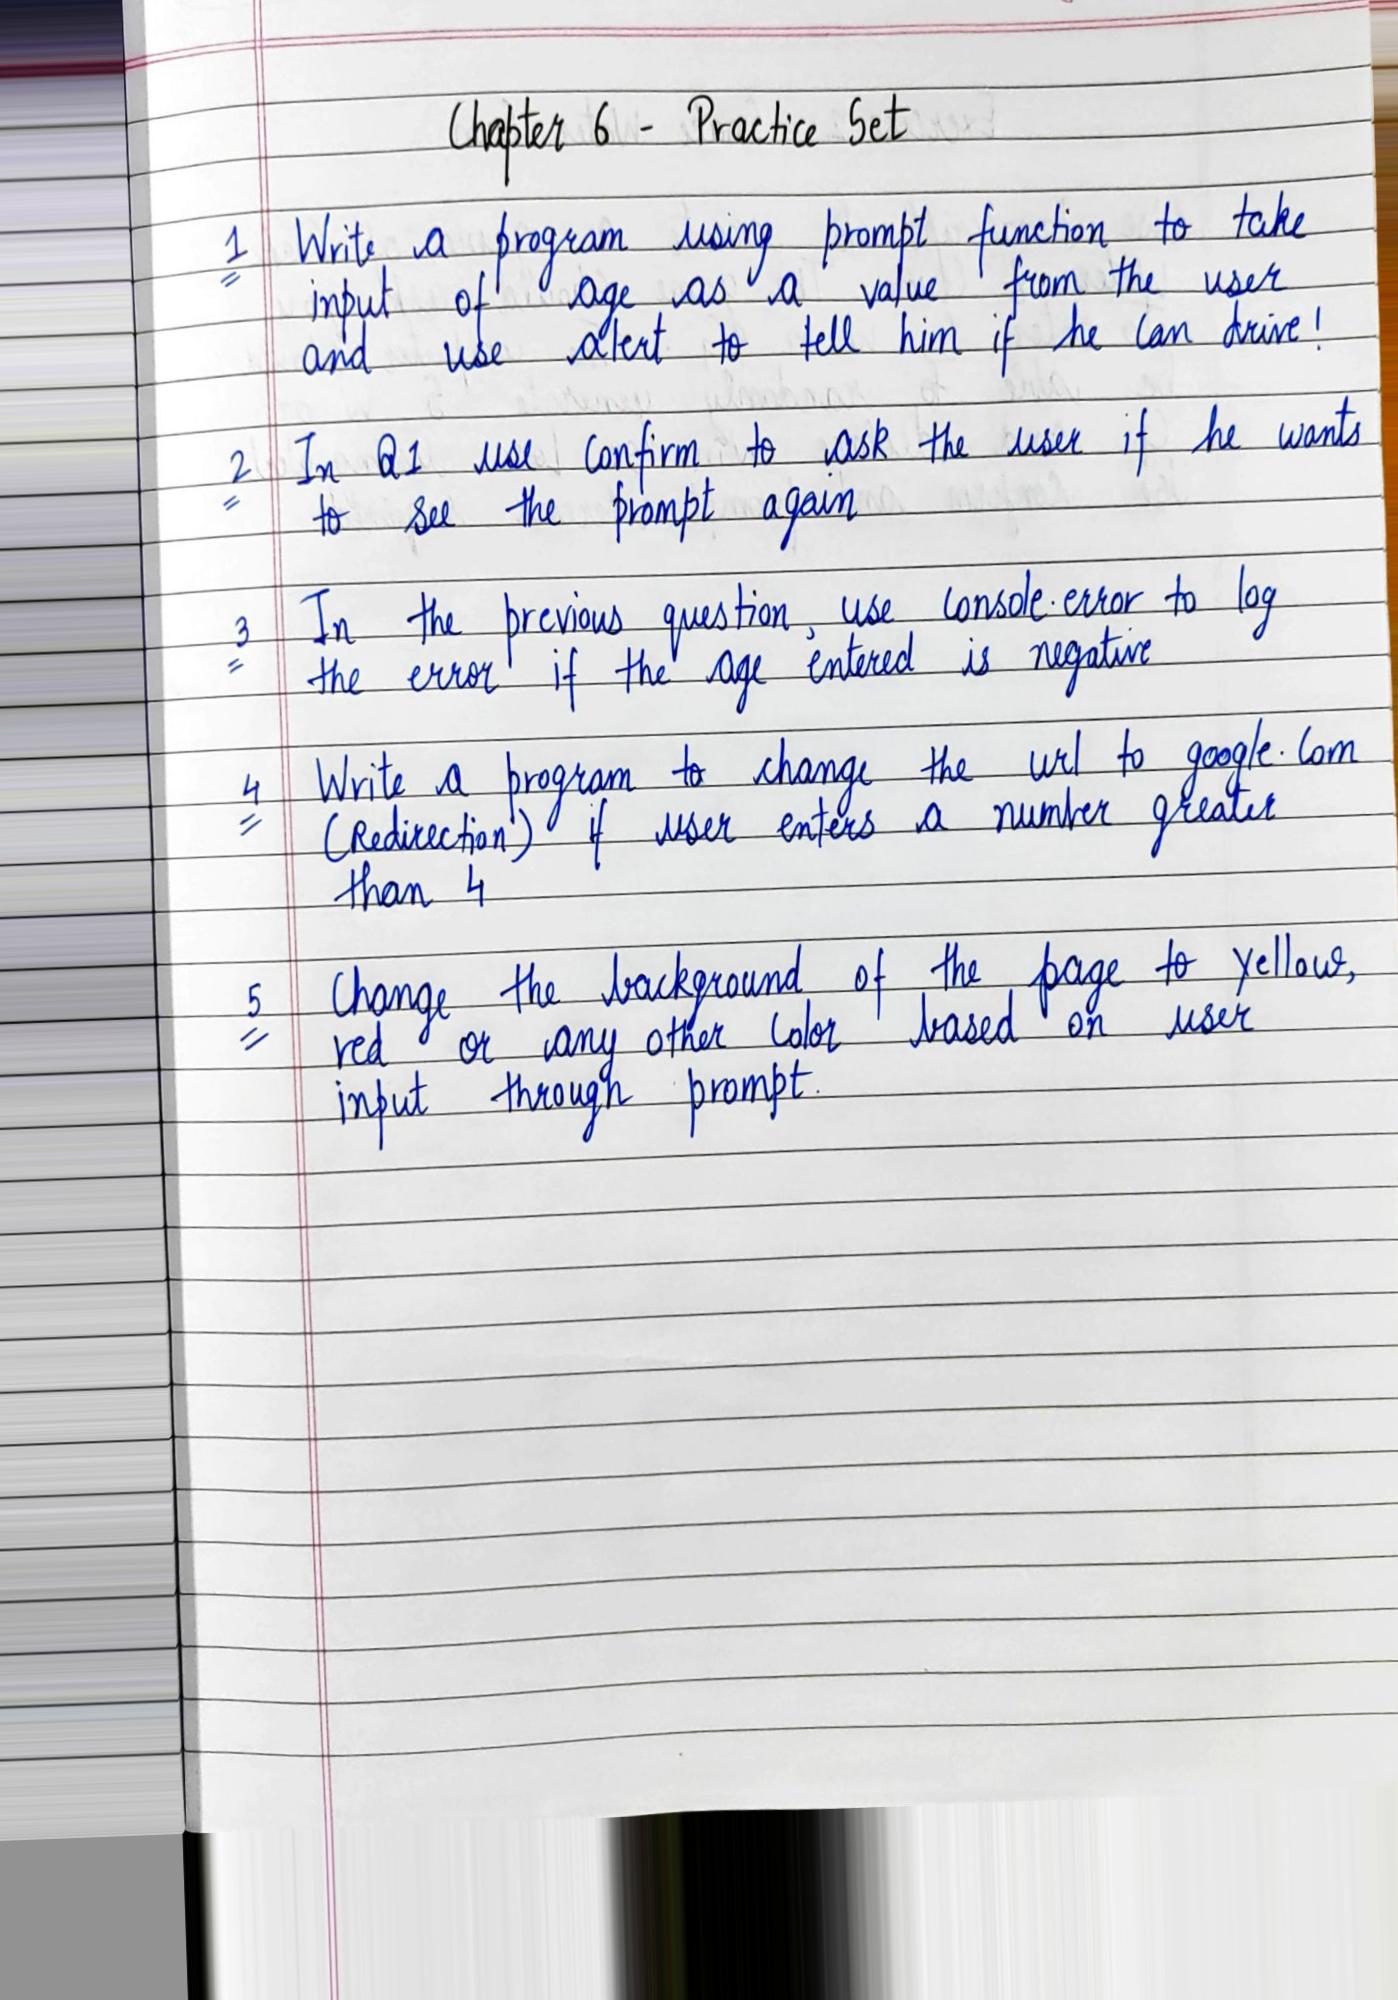 Chapter 6 - Practice Set
1 Write a program using prompt function to take
input of age as a value from the user
and use alert to tell him if he can drive!
2 In Q1 use confirm to ask the user if he wants
to see the prompt again
3 In the previous question, use console.error to log
the error if the age entered is negative
4 Write a program to change the url to google.com
(Redirection) if user enters a number greater
than 4
5 Change the background of the page to yellow,
red or any other color based on user
input through prompt.